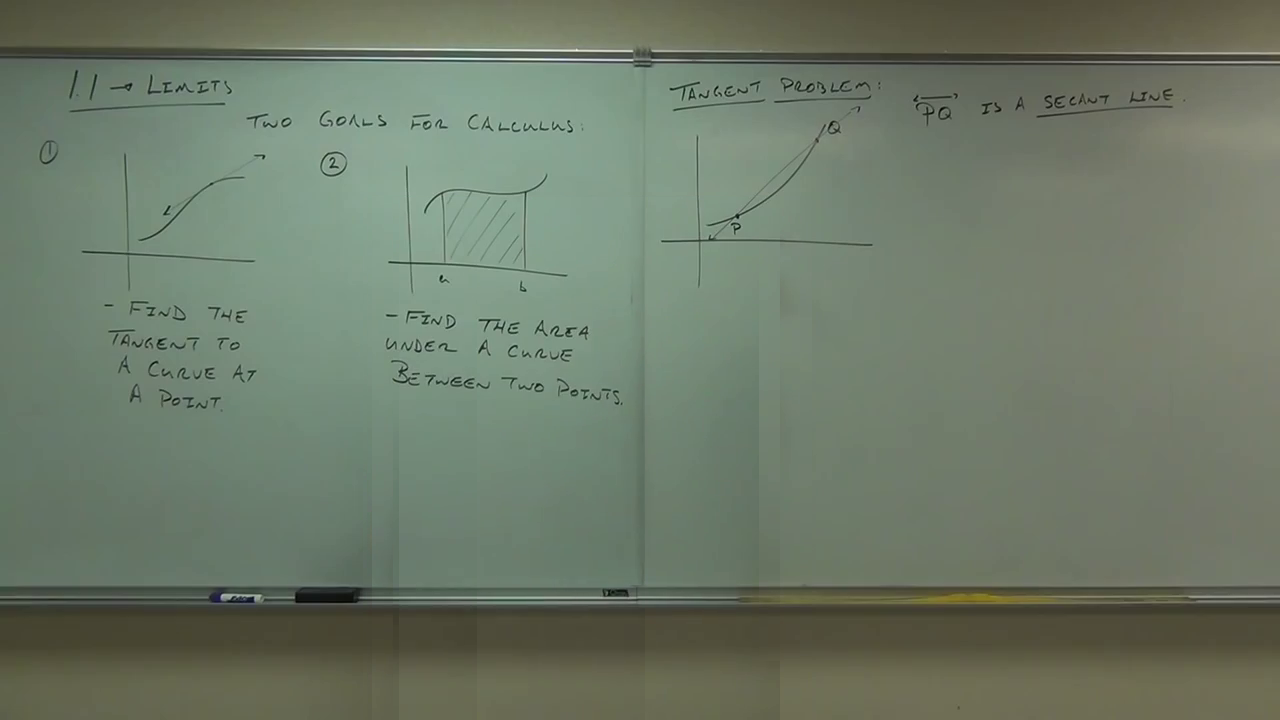 1.1 → LIMITS
TWO GOALS FOR CALCULUS:
①
②
a
b
- FIND THE
TANGENT TO
A CURVE AT
A POINT.
- FIND THE AREA
UNDER A CURVE
BETWEEN TWO POINTS.
TANGENT PROBLEM:
PQ IS A SECANT LINE.
Q
P